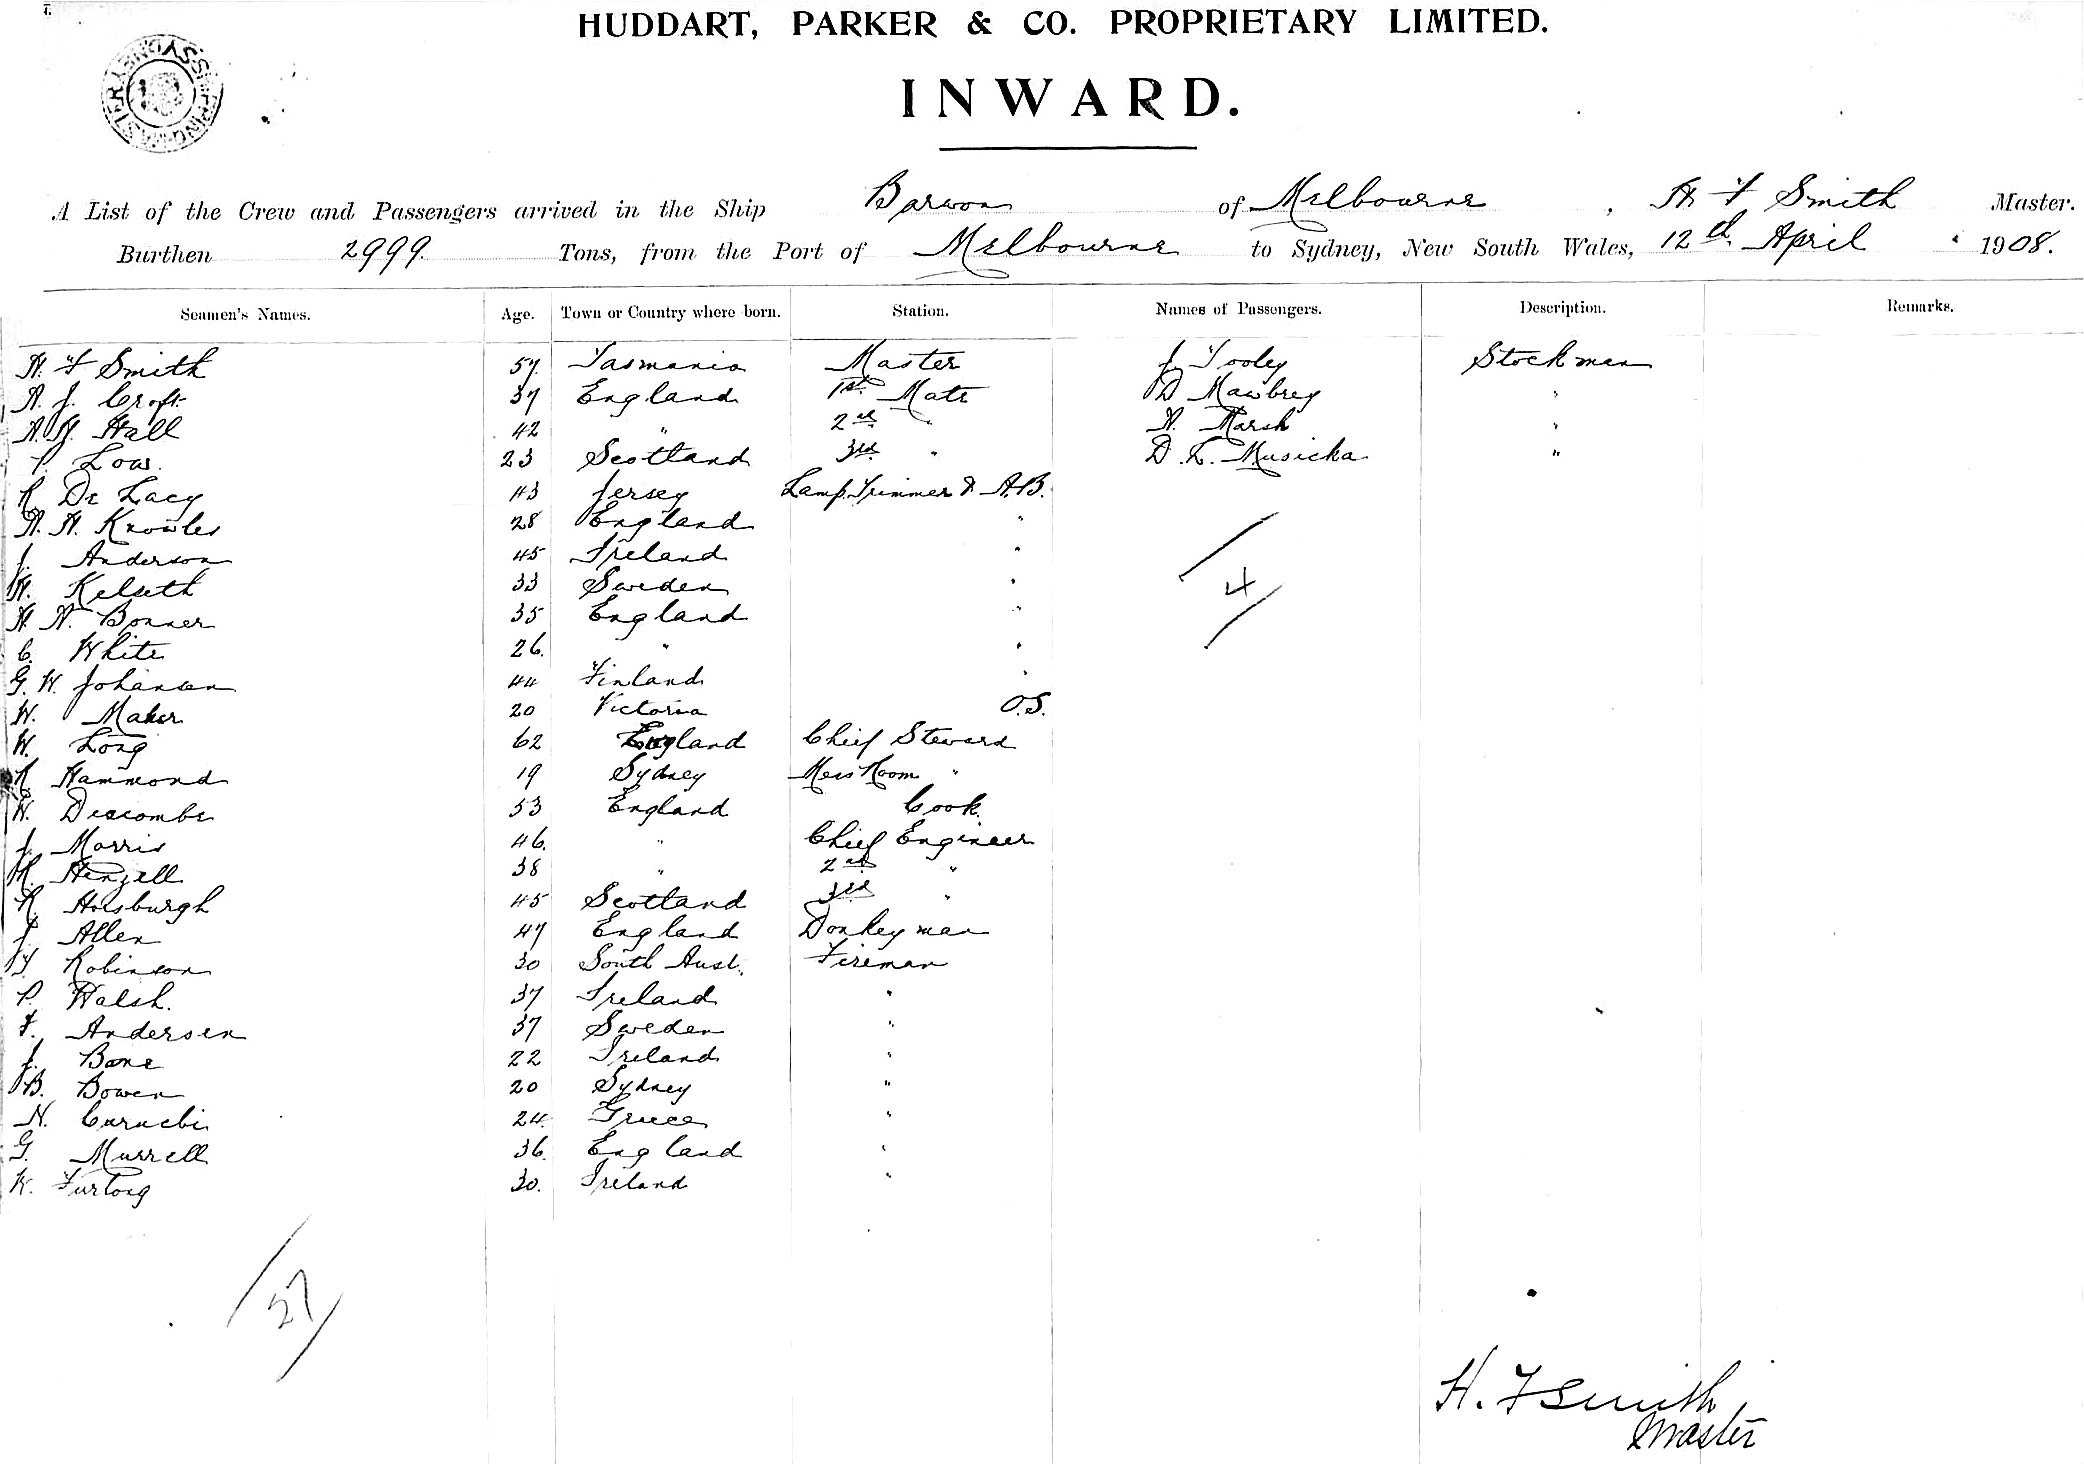 HUDDART, PARKER & CO. PROPRIETARY LIMITED.
INWARD.
A List of the Crew and Passengers arrived in the Ship Barwon of Melbourne, H F Smith Master.
Burthen 2999. Tons, from the Port of Melbourne to Sydney, New South Wales, 12th April 1908.
Seamen's Names. Age. Town or Country where born. Station. Names of Passengers. Description. Remarks.
H. F Smith 57 Tasmania Master J Tooley Stockman
A. J. Croft 37 England 1st Mate D Mawbrey "
A. H. Hall 42 " 2nd " H. Marsh "
P. Low. 23 Scotland 3rd " D. L. Musicka "
R De Lacy 43 Jersey Lamp Trimmer & A.B.
A. H. Knowles 28 England "
J. Anderson 45 Ireland "
H. Kelseth 33 Sweden "
H. A. Bonner 35 England "
C. White 26. " "
G. W. Johansen 44 Finland "
W. Maker 20 Victoria O.S.
W. Long 62 England Chief Steward
R Hammond 19 Sydney Mess Room "
W. Deacombe 53 England Cook
J. Morris 46. " Chief Engineer
Henzell 38 " 2nd "
R Horsburgh 45 Scotland 3rd "
J. Allen 47 England Donkeyman
Robinson 30 South Aust. Fireman
P. Walsh. 37 Ireland "
F. Andersen 37 Sweden "
J. Bone 22 Ireland "
B. Bowen 20 Sydney "
N. 24. Greece "
G. Murrell 36. England "
W. Furlong 30. Ireland "
4
27
H. F Smith
Master